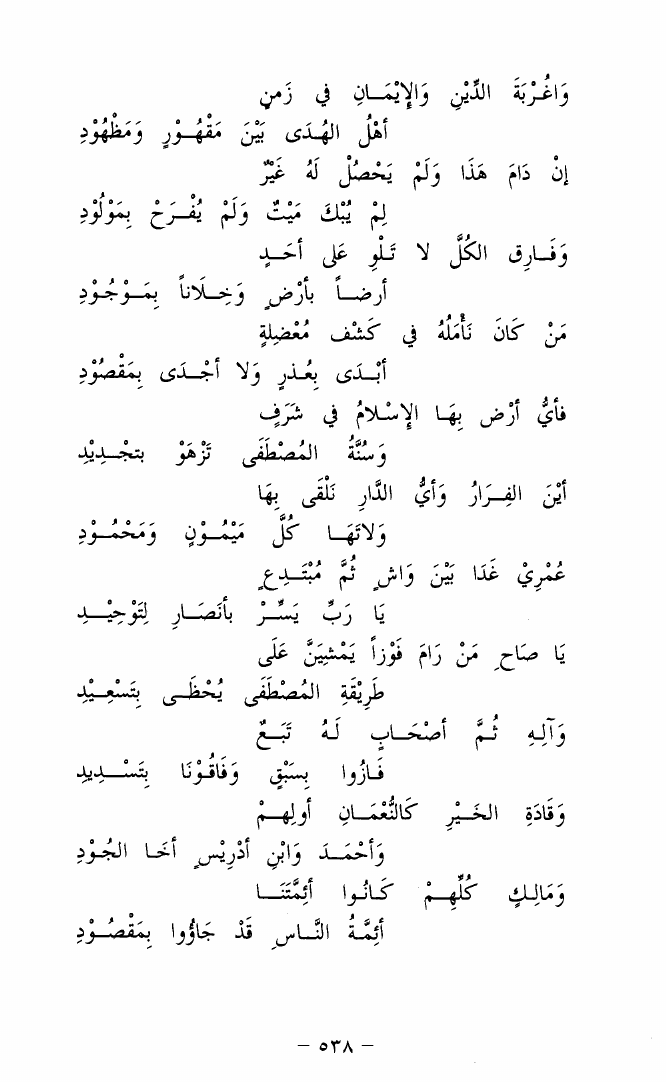 وَاغُرْبَةَ الدِّيْنِ وَالإِيْمَـانِ في زَمنٍ
أهْلُ الهُـدَى بَيْنَ مَقْهُـوْرٍ وَمَظْهُوْدِ
إنْ دَامَ هَذَا وَلَمْ يَحْصُلْ لَهُ غَيْرٌ
لِمْ يُبْكَ مَيْتٌ وَلَمْ يُفْـرَحْ بِمَوْلُوْدِ
وَفَـارِق الكُلَّ لا تَـلْوِ عَلى أحَـدٍ
أرضـاً بأرْضٍ وَخِـلَاناً بِمَـوْجُـوْدِ
مَنْ كَانَ نَأْمَلُهُ في كَشْف مُعْضِلةٍ
أبْـدَى بِعُـذرٍ وَلا أجْـدَى بِمَقْصُوْدِ
فأيُّ أرْض بِهَـا الإِسْـلامُ في شَرَفٍ
وَسُنَّةُ المُصْطَفَى تَزْهَوْ بتجْـدِيْدِ
أيْنَ الفِـرَارُ وَأيُّ الدَّارِ نَلْقَى بِهَا
وَلاتَهَـا كُلَّ مَيْمُـوْنٍ وَمَحْمُـوْدِ
عُمْرِيْ غَدَا بَيْنَ وَاشٍ ثُمَّ مُبْتَـدِعٍ
يَا رَبِّ يَسِّـرْ بأنَصَـارِ لِتَوْحِيْـدِ
يَا صَاحِ مَنْ رَامَ فَوْزاً يَمْشِيَنَّ عَلَى
طَرِيْقَةِ المُصْطَفَى يُحْظَـى بِتَسْعِيْدِ
وَآلِهِ ثُـمَّ أصْحَـابٍ لَـهُ تَبَـعٌ
فَـازُوا بِسَبْقٍ وَفَاقُوْنَا بِتَسْـدِيدِ
وَقَادَةِ الخَـيْرِ كَالنُّعْمَـانِ أولِهِـمْ
وَأحْمَـدَ وَابْنِ أدْرِيْسٍ أخَـا الجُـوْدِ
وَمَالِـكٍ كُلِّهِـمْ كَـانُوا أئِمَّتَنَـا
أئِمَّـةُ النَّـاسِ قَدْ جَاؤُوا بِمَقْصُـوْدِ
– ٥٣٨ –